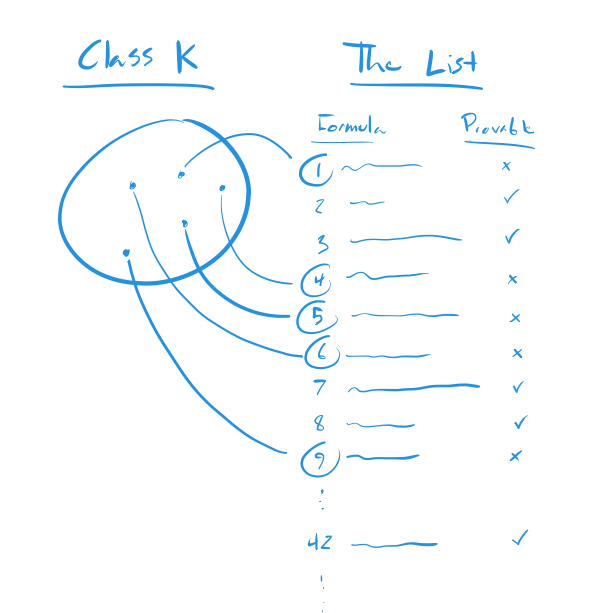 Class K
The List
Formula Provable
1 ×
2 ✓
3 ✓
4 ×
5 ×
6 ×
7 ✓
8 ✓
9 ×
⋮
42 ✓
⋮